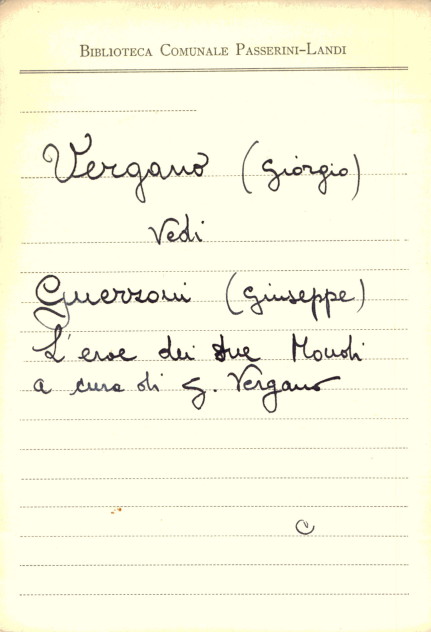 BIBLIOTECA COMUNALE PASSERINI-LANDI
Vergano (Giorgio)
Vedi
Guerzoni (Giuseppe)
L'eroe dei due Mondi
a cura di G. Vergano
C